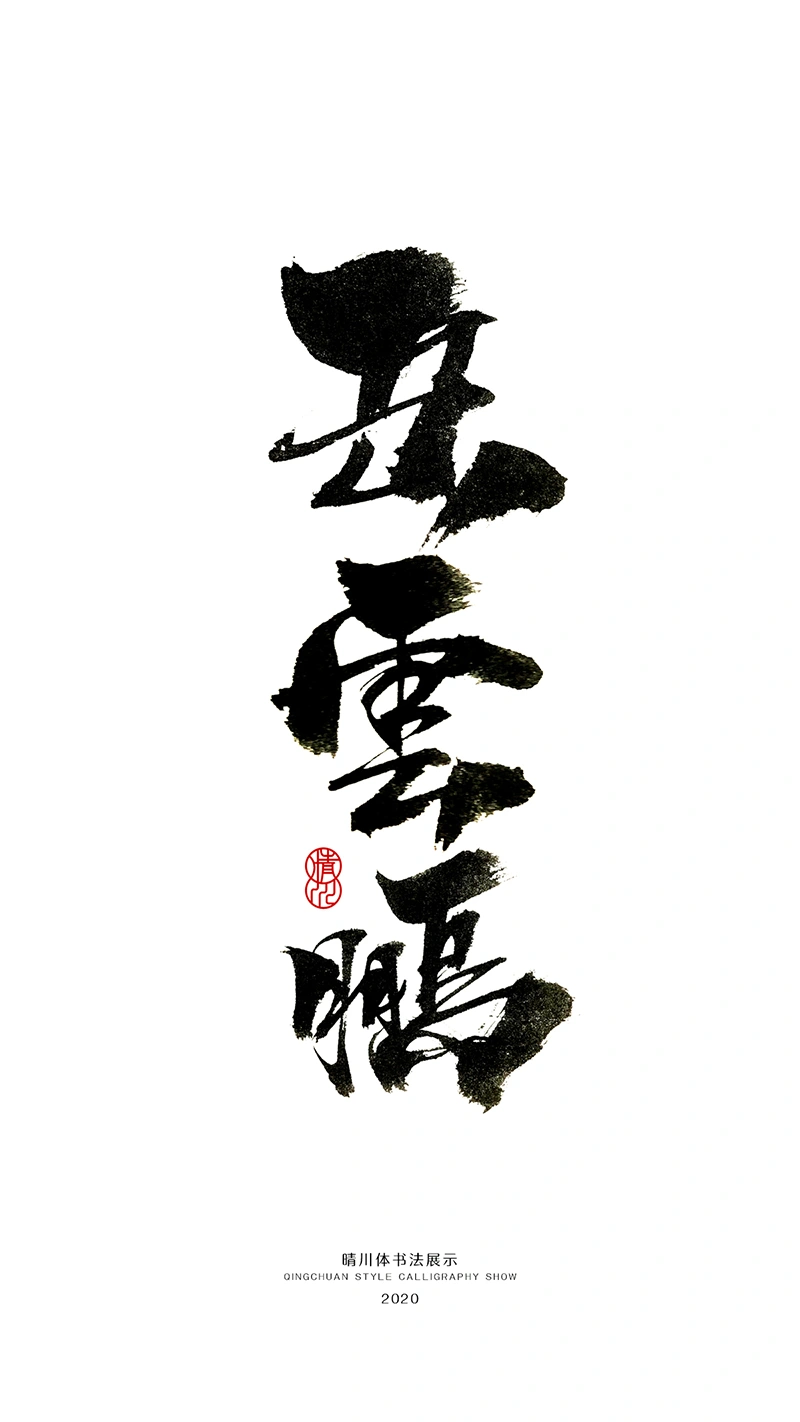 岳雲鵬
晴川
晴川体书法展示
QINGCHUAN STYLE CALLIGRAPHY SHOW
2020